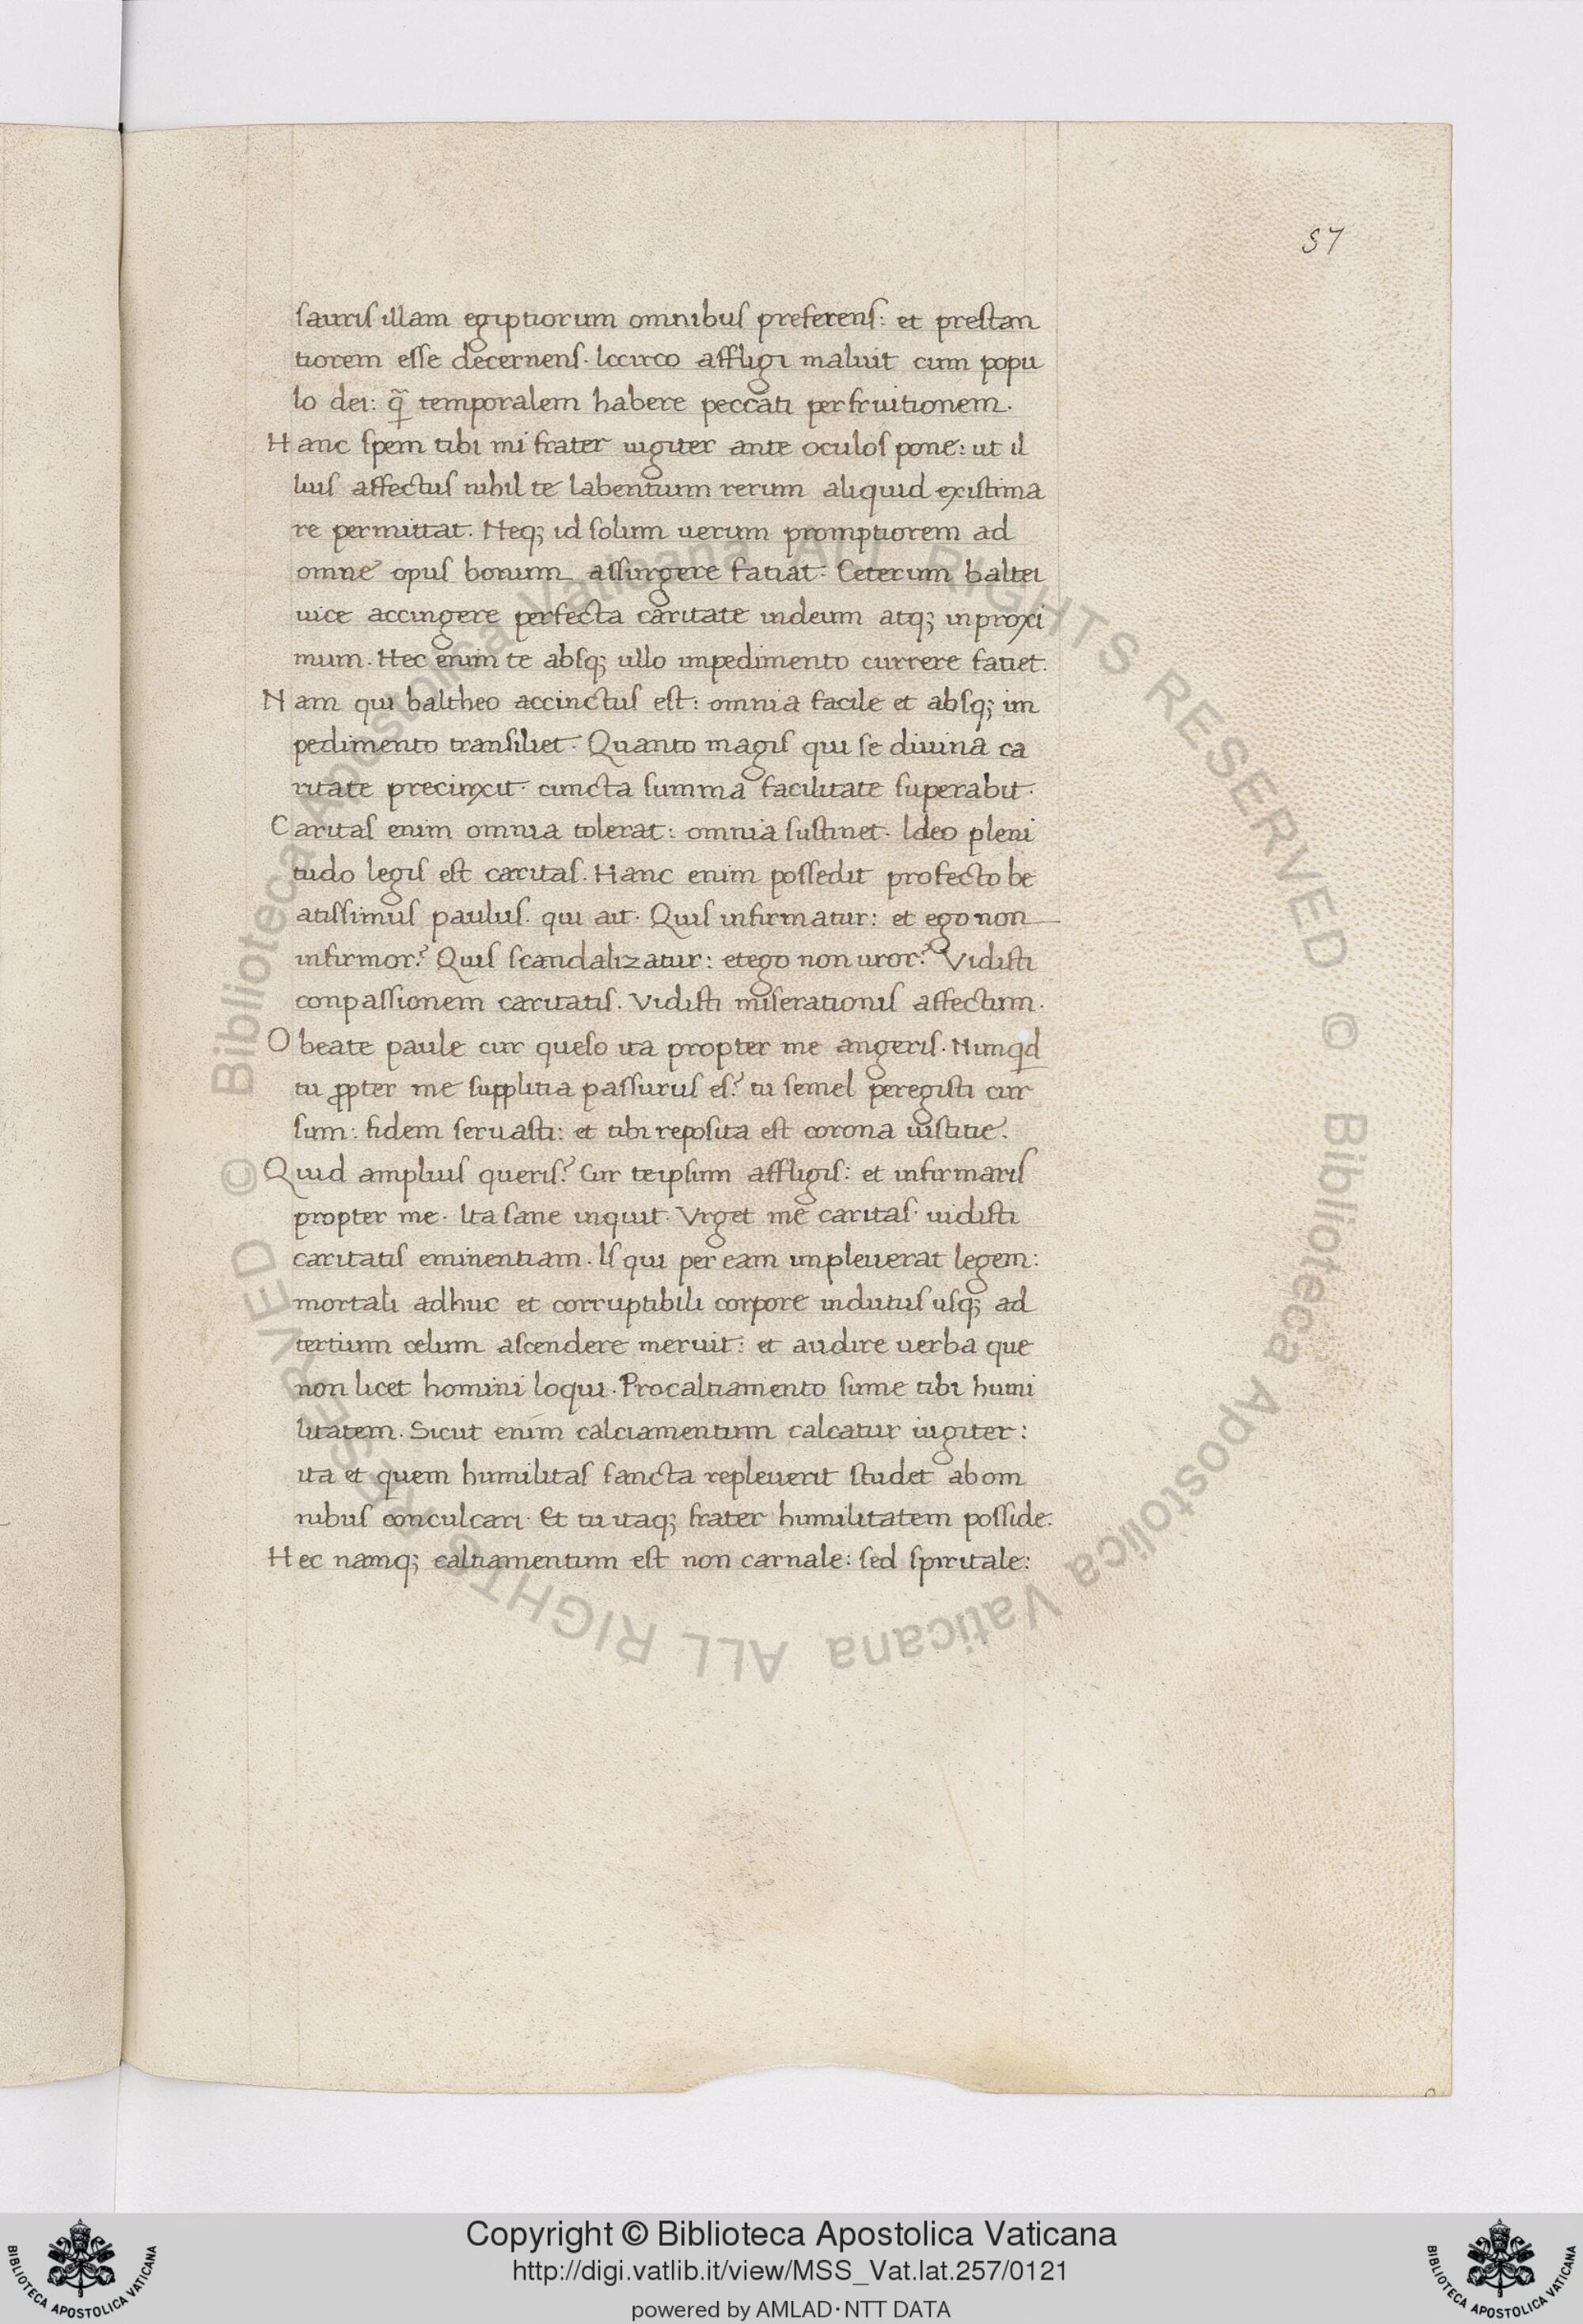 57
sauris illam egiptiorum omnibus preferens: et prestan
tiorem esse decernens. Iccirco affligi maluit cum popu
lo dei: q̃ temporalem habere peccati perfruitionem.
Hanc spem tibi mi frater iugiter ante oculos pone: ut il
lius affectus nihil te labentium rerum aliquid existima
re permittat. Neq; id solum uerum promptiorem ad
omne opus bonum assurgere fatiat. Ceterum baltei
uice accingere perfecta caritate indeum atq; inproxi
mum. Hec enim te absq; ullo impedimento currere fatiet.
Nam qui baltheo accinctus est: omnia facile et absq; im
pedimento transiliet. Quanto magis qui se diuina ca
ritate precinxit. cuncta summa facilitate superabit.
Caritas enim omnia tolerat: omnia sustinet. Ideo pleni
tudo legis est caritas. Hanc enim possedit profecto be
atissimus paulus. qui ait. Quis infirmatur: et ego non
infirmor? Quis scandalizatur: et ego non uror? Vidisti
conpassionem caritatis. Vidisti miserationis affectum.
O beate paule cur queso ita propter me angeris. Nunqd
tu ꝓpter me supplitia passurus es? tu semel peregisti cur
sum: fidem seruasti: et tibi reposita est corona iustitie.
Quid amplius queris? Cur teipsum affligis: et infirmaris
propter me. Ita sane inquit. Vrget me caritas. uidisti
caritatis eminentiam. Is qui per eam impleuerat legem:
mortali adhuc et corruptibili corpore indutus usq; ad
tertium celum ascendere meruit: et audire uerba que
non licet homini loqui. Procaltiamento sume tibi humi
litatem. Sicut enim calciamentum calcatur iugiter:
ita et quem humilitas sancta repleuerit studet ab om
nibus conculcari. Et tu itaq; frater humilitatem posside.
Hec namq; caltiamentum est non carnale: sed spiritale:
© Biblioteca Apostolica Vaticana ALL RIGHTS RESERVED © Biblioteca Apostolica Vaticana ALL RIGHTS RESERVED
Copyright © Biblioteca Apostolica Vaticana
http://digi.vatlib.it/view/MSS_Vat.lat.257/0121
powered by AMLAD·NTT DATA
BIBLIOTECA APOSTOLICA VATICANA
BIBLIOTECA APOSTOLICA VATICANA